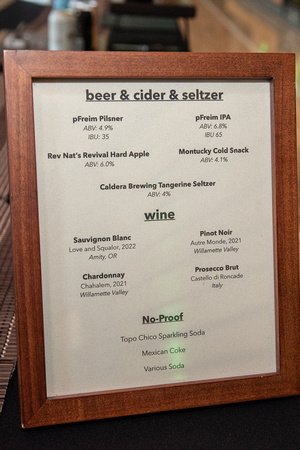 beer & cider & seltzer
pFreim Pilsner
ABV: 4.9%
IBU: 35
pFreim IPA
ABV: 6.8%
IBU 65
Rev Nat's Revival Hard Apple
ABV: 6.0%
Montucky Cold Snack
ABV: 4.1%
Caldera Brewing Tangerine Seltzer
ABV: 4%
wine
Sauvignon Blanc
Love and Squalor, 2022
Amity, OR
Pinot Noir
Autre Monde, 2021
Willamette Valley
Chardonnay
Chahalem, 2021
Willamette Valley
Prosecco Brut
Castello di Roncade
Italy
No-Proof
Topo Chico Sparkling Soda
Mexican Coke
Various Soda